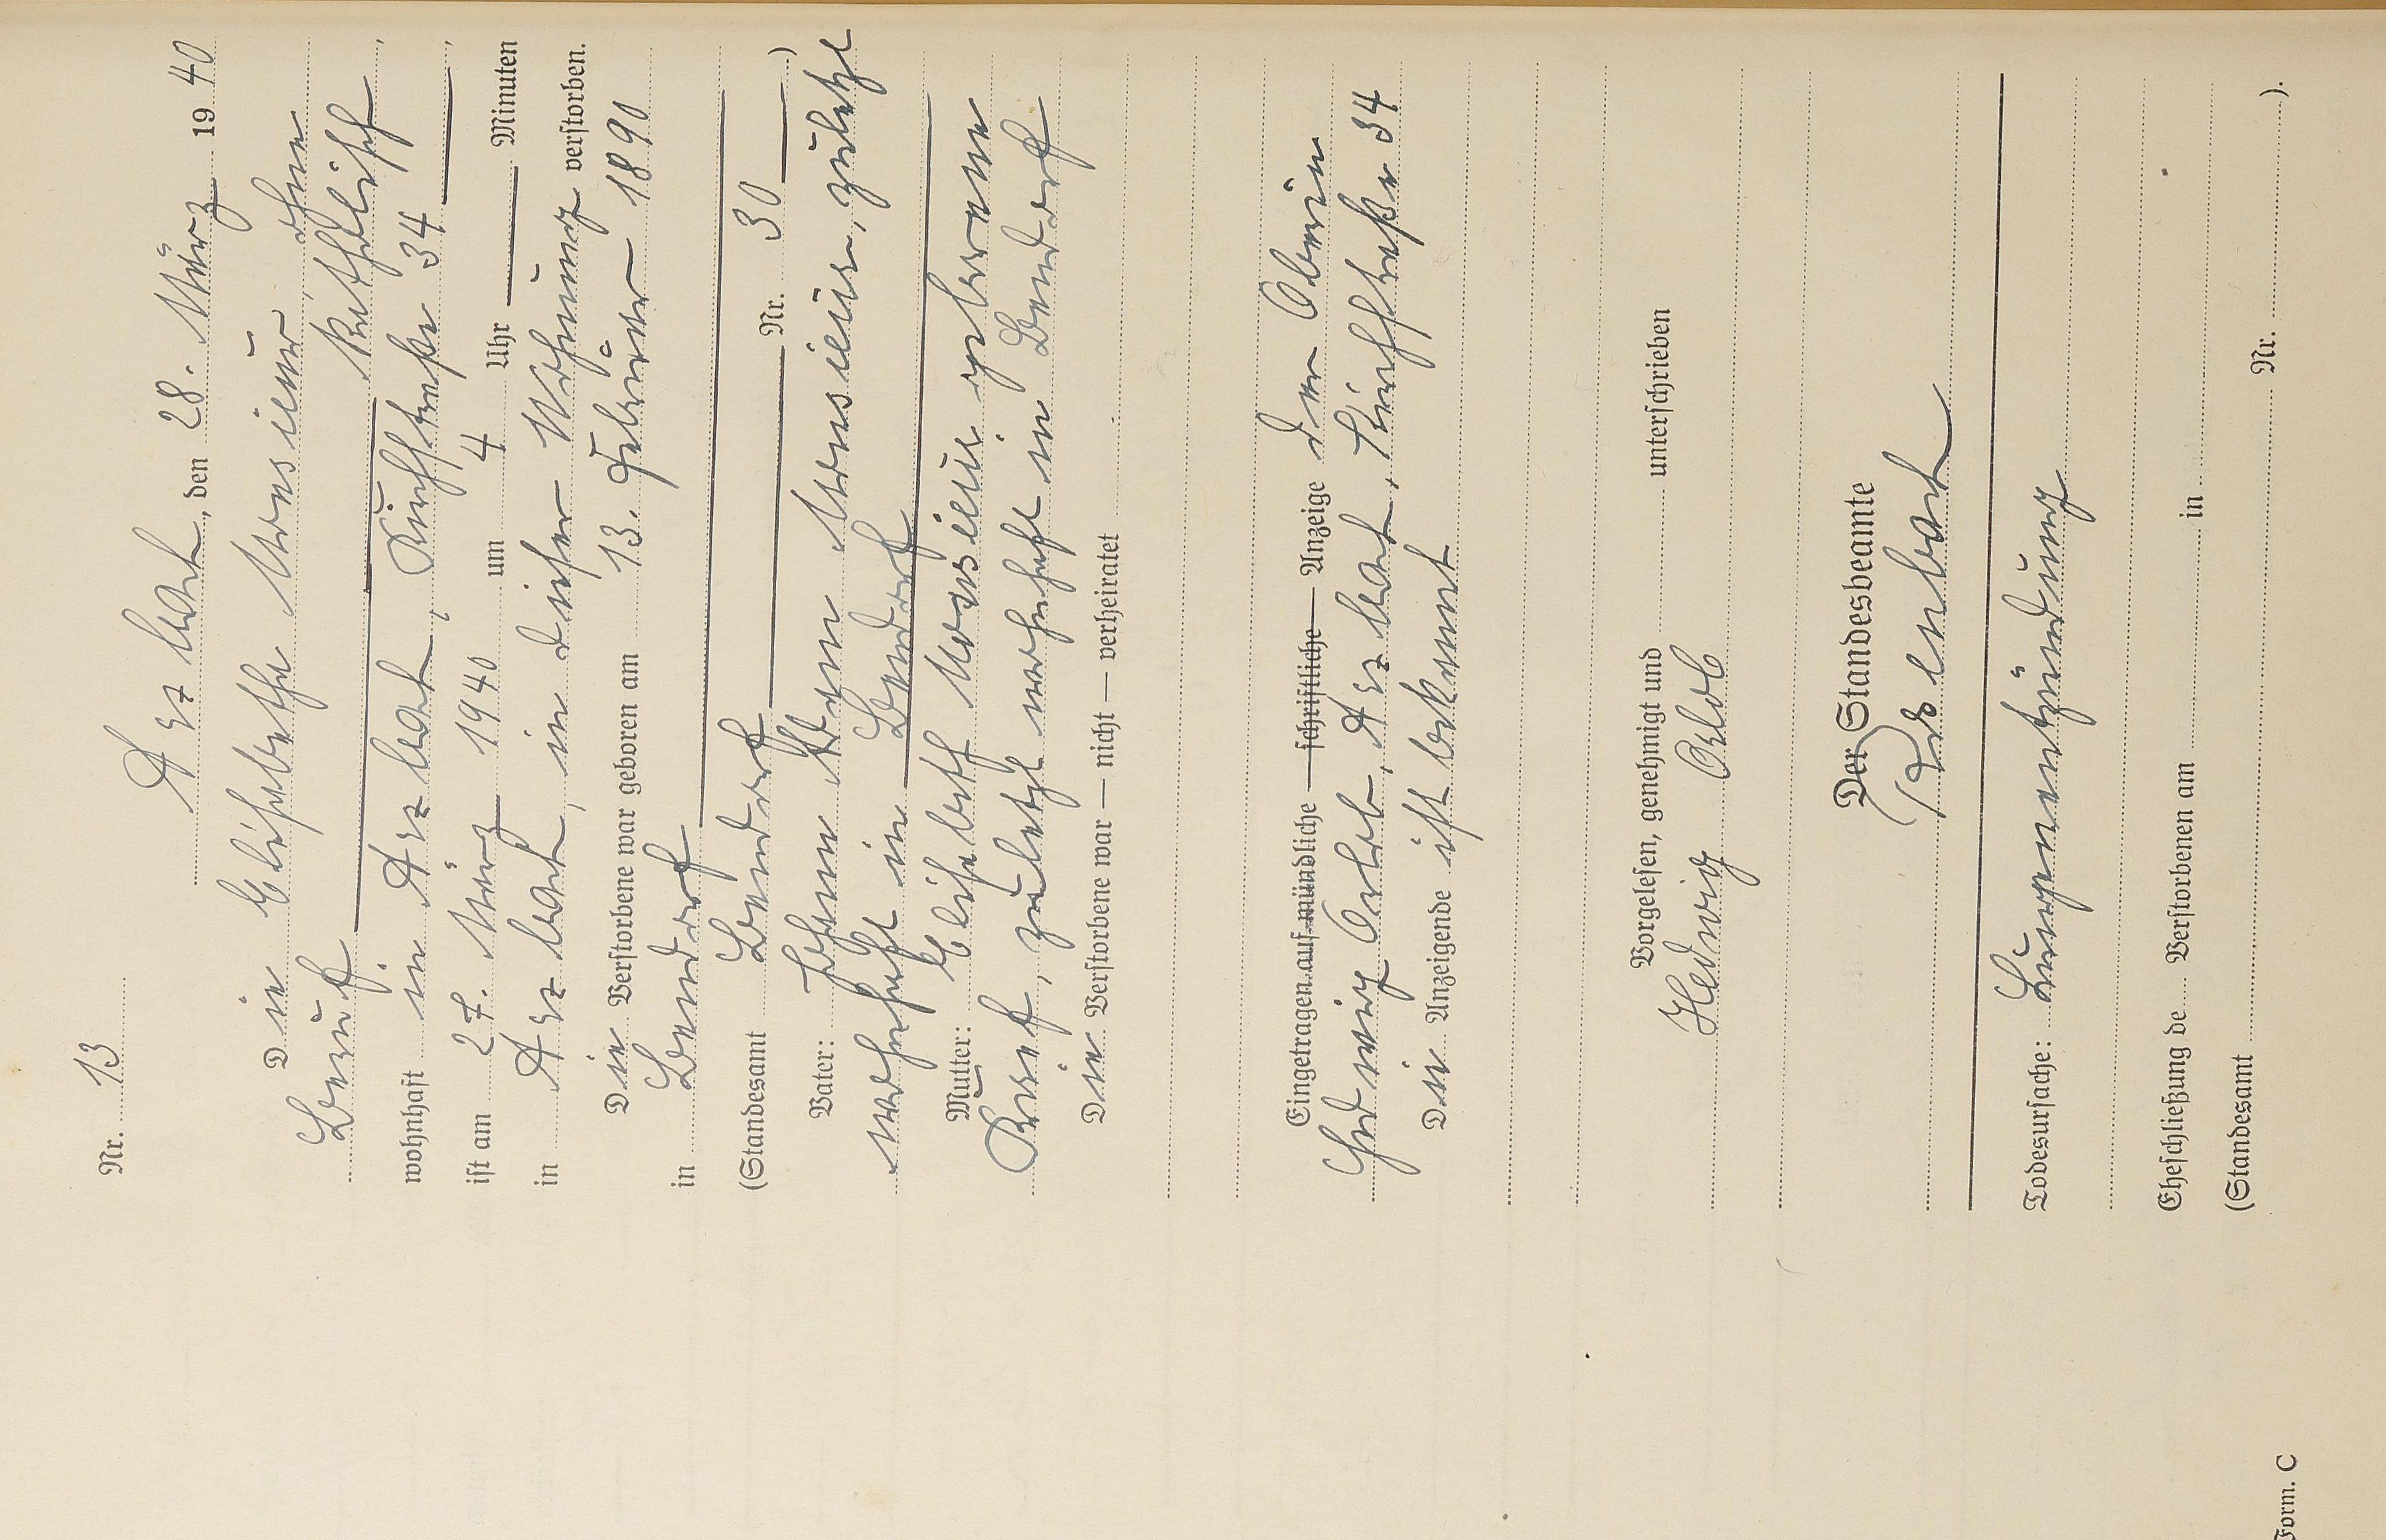 Nr. 13
Arzbach, den 28. März 1940
Die Elisabetha Monsieur, ohne
Beruf katholisch,
wohnhaft in Arzbach, Kirchstraße 34,
ist am 27. März 1940 um 4 Uhr Minuten
in Arzbach, in dieser Wohnung verstorben.
Die Verstorbene war geboren am 13. Februar 1890
in Bendorf
(Standesamt Bendorf Nr. 30)
Vater: Johann Monsieur, zuletzt
wohnhaft in Bendorf
Mutter: Elisabeth Monsieur geborene
zuletzt wohnhaft in Bendorf
Die Verstorbene war — nicht — verheiratet
Eingetragen auf mündliche — schriftliche — Anzeige der Oberin
Hedwig Orlob, Arzbach, Kirchstraße 34
Die Anzeigende ist bekannt
Vorgelesen, genehmigt und unterschrieben
Hedwig Orlob
Der Standesbeamte
Todesursache: Lungenentzündung
Eheschließung de Verstorbenen am in
(Standesamt Nr. ).
Form. C